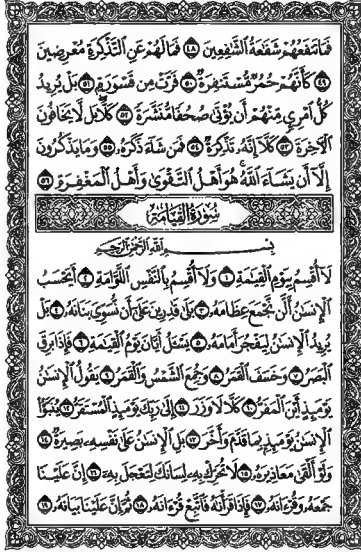 فَمَا تَنفَعُهُمْ شَفَٰعَةُ ٱلشَّٰفِعِينَ ٤٨ فَمَا لَهُمْ عَنِ ٱلتَّذْكِرَةِ مُعْرِضِينَ
٤٩ كَأَنَّهُمْ حُمُرٌ مُّسْتَنفِرَةٌ ٥٠ فَرَّتْ مِن قَسْوَرَةٍ ٥١ بَلْ يُرِيدُ
كُلُّ ٱمْرِئٍ مِّنْهُمْ أَن يُؤْتَىٰ صُحُفًا مُّنَشَّرَةً ٥٢ كَلَّا بَل لَّا يَخَافُونَ
ٱلْءَاخِرَةَ ٥٣ كَلَّا إِنَّهُۥ تَذْكِرَةٌ ٥٤ فَمَن شَآءَ ذَكَرَهُۥ ٥٥ وَمَا يَذْكُرُونَ
إِلَّا أَن يَشَآءَ ٱللَّهُ هُوَ أَهْلُ ٱلتَّقْوَىٰ وَأَهْلُ ٱلْمَغْفِرَةِ ٥٦
سُورَةُ القِيَامَةِ
بِسْمِ ٱللَّهِ ٱلرَّحْمَٰنِ ٱلرَّحِيمِ
لَآ أُقْسِمُ بِيَوْمِ ٱلْقِيَٰمَةِ ١ وَلَآ أُقْسِمُ بِٱلنَّفْسِ ٱللَّوَّامَةِ ٢ أَيَحْسَبُ
ٱلْإِنسَٰنُ أَلَّن نَّجْمَعَ عِظَامَهُۥ ٣ بَلَىٰ قَٰدِرِينَ عَلَىٰٓ أَن نُّسَوِّىَ بَنَانَهُۥ ٤ بَلْ
يُرِيدُ ٱلْإِنسَٰنُ لِيَفْجُرَ أَمَامَهُۥ ٥ يَسْـَٔلُ أَيَّانَ يَوْمُ ٱلْقِيَٰمَةِ ٦ فَإِذَا بَرِقَ
ٱلْبَصَرُ ٧ وَخَسَفَ ٱلْقَمَرُ ٨ وَجُمِعَ ٱلشَّمْسُ وَٱلْقَمَرُ ٩ يَقُولُ ٱلْإِنسَٰنُ
يَوْمَئِذٍ أَيْنَ ٱلْمَفَرُّ ١٠ كَلَّا لَا وَزَرَ ١١ إِلَىٰ رَبِّكَ يَوْمَئِذٍ ٱلْمُسْتَقَرُّ ١٢ يُنَبَّؤُا۟
ٱلْإِنسَٰنُ يَوْمَئِذٍۭ بِمَا قَدَّمَ وَأَخَّرَ ١٣ بَلِ ٱلْإِنسَٰنُ عَلَىٰ نَفْسِهِۦ بَصِيرَةٌ ١٤
وَلَوْ أَلْقَىٰ مَعَاذِيرَهُۥ ١٥ لَا تُحَرِّكْ بِهِۦ لِسَانَكَ لِتَعْجَلَ بِهِۦٓ ١٦ إِنَّ عَلَيْنَا
جَمْعَهُۥ وَقُرْءَانَهُۥ ١٧ فَإِذَا قَرَأْنَٰهُ فَٱتَّبِعْ قُرْءَانَهُۥ ١٨ ثُمَّ إِنَّ عَلَيْنَا بَيَانَهُۥ ١٩